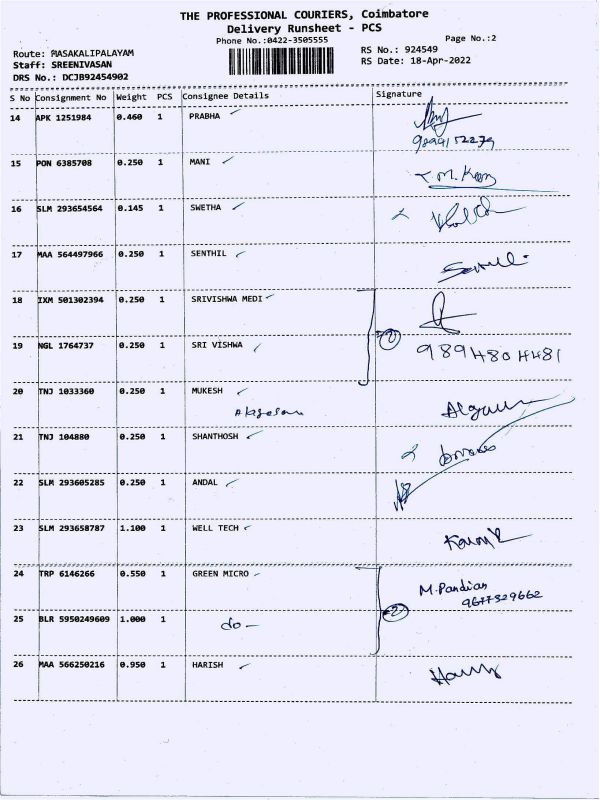 THE PROFESSIONAL COURIERS, Coimbatore
Delivery Runsheet - PCS
Phone No.:0422-3505555
Page No.:2
Route: MASAKALIPALAYAM
RS No.: 924549
Staff: SREENIVASAN
RS Date: 18-Apr-2022
DRS No.: DCJB92454902
S No Consignment No Weight PCS Consignee Details Signature
14 APK 1251984 0.460 1 PRABHA
15 PON 6385708 0.250 1 MANI
16 SLM 293654564 0.145 1 SWETHA
17 MAA 564497966 0.250 1 SENTHIL
18 IXM 501302394 0.250 1 SRIVISHWA MEDI
19 NGL 1764737 0.250 1 SRI VISHWA 2 9894804481
20 TNJ 1033360 0.250 1 MUKESH
21 TNJ 104880 0.250 1 SHANTHOSH
22 SLM 293605285 0.250 1 ANDAL
23 SLM 293658787 1.100 1 WELL TECH
24 TRP 6146266 0.550 1 GREEN MICRO M. Pandian
9677529662
25 BLR 5950249609 1.000 1 do - 2
26 MAA 566250216 0.950 1 HARISH